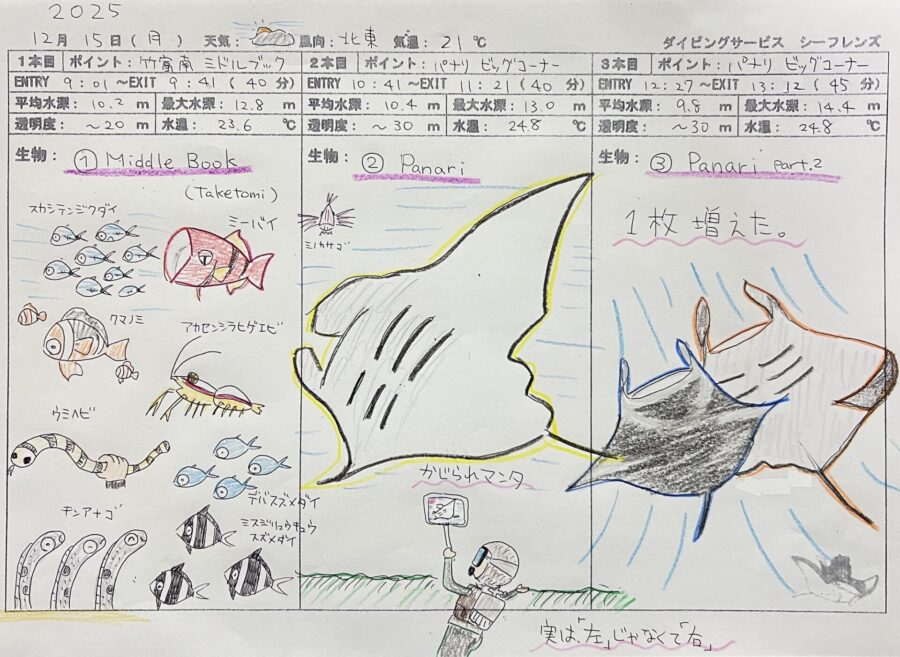 2025
12月 15日(月) 天気: 風向: 北東 気温: 21℃ ダイビングサービス シーフレンズ
1本目 ポイント: 竹富南 ミドルブック
ENTRY 9:01〜EXIT 9:41(40分)
平均水深: 10.2 m 最大水深: 12.8 m
透明度: 〜20 m 水温: 23.6 ℃
生物: ① Middle Book
(Taketomi)
スカシテンジクダイ
ミーバイ
クマノミ
アカセンシラヒゲエビ
ウミヘビ
デバスズメダイ
チンアナゴ
ミスジリュウキュウ
スズメダイ
2本目 ポイント: パナリ ビッグコーナー
ENTRY 10:41〜EXIT 11:21(40分)
平均水深: 10.4 m 最大水深: 13.0 m
透明度: 〜30 m 水温: 24.8 ℃
生物: ② Panari
ミノカサゴ
かじられマンタ
3本目 ポイント: パナリ ビッグコーナー
ENTRY 12:27〜EXIT 13:12(45分)
平均水深: 9.8 m 最大水深: 14.4 m
透明度: 〜30 m 水温: 24.8 ℃
生物: ③ Panari part.2
1枚増えた。
実は、「左」じゃなくて「右」